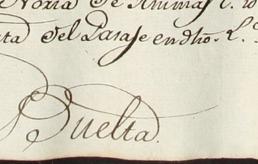 Noria de Animas
ta del Parage en dho.
Buelta.